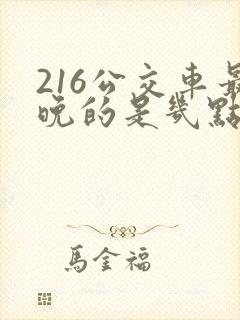 216公交車最
晚的是幾點
馬金福